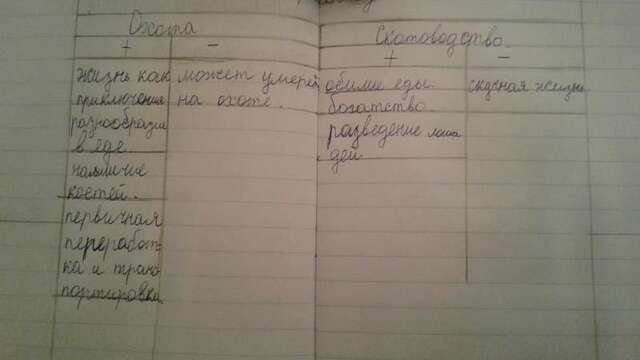 Охота
+ -
жизнь как
приключения
разнообразие
в еде
наличие
костей.
первичная
переработ
ка и транс
портировка
может умереть
на охоте.
Скотоводство.
+ -
обилие еды.
богатство.
разведение лоша
дей
скучная жизнь